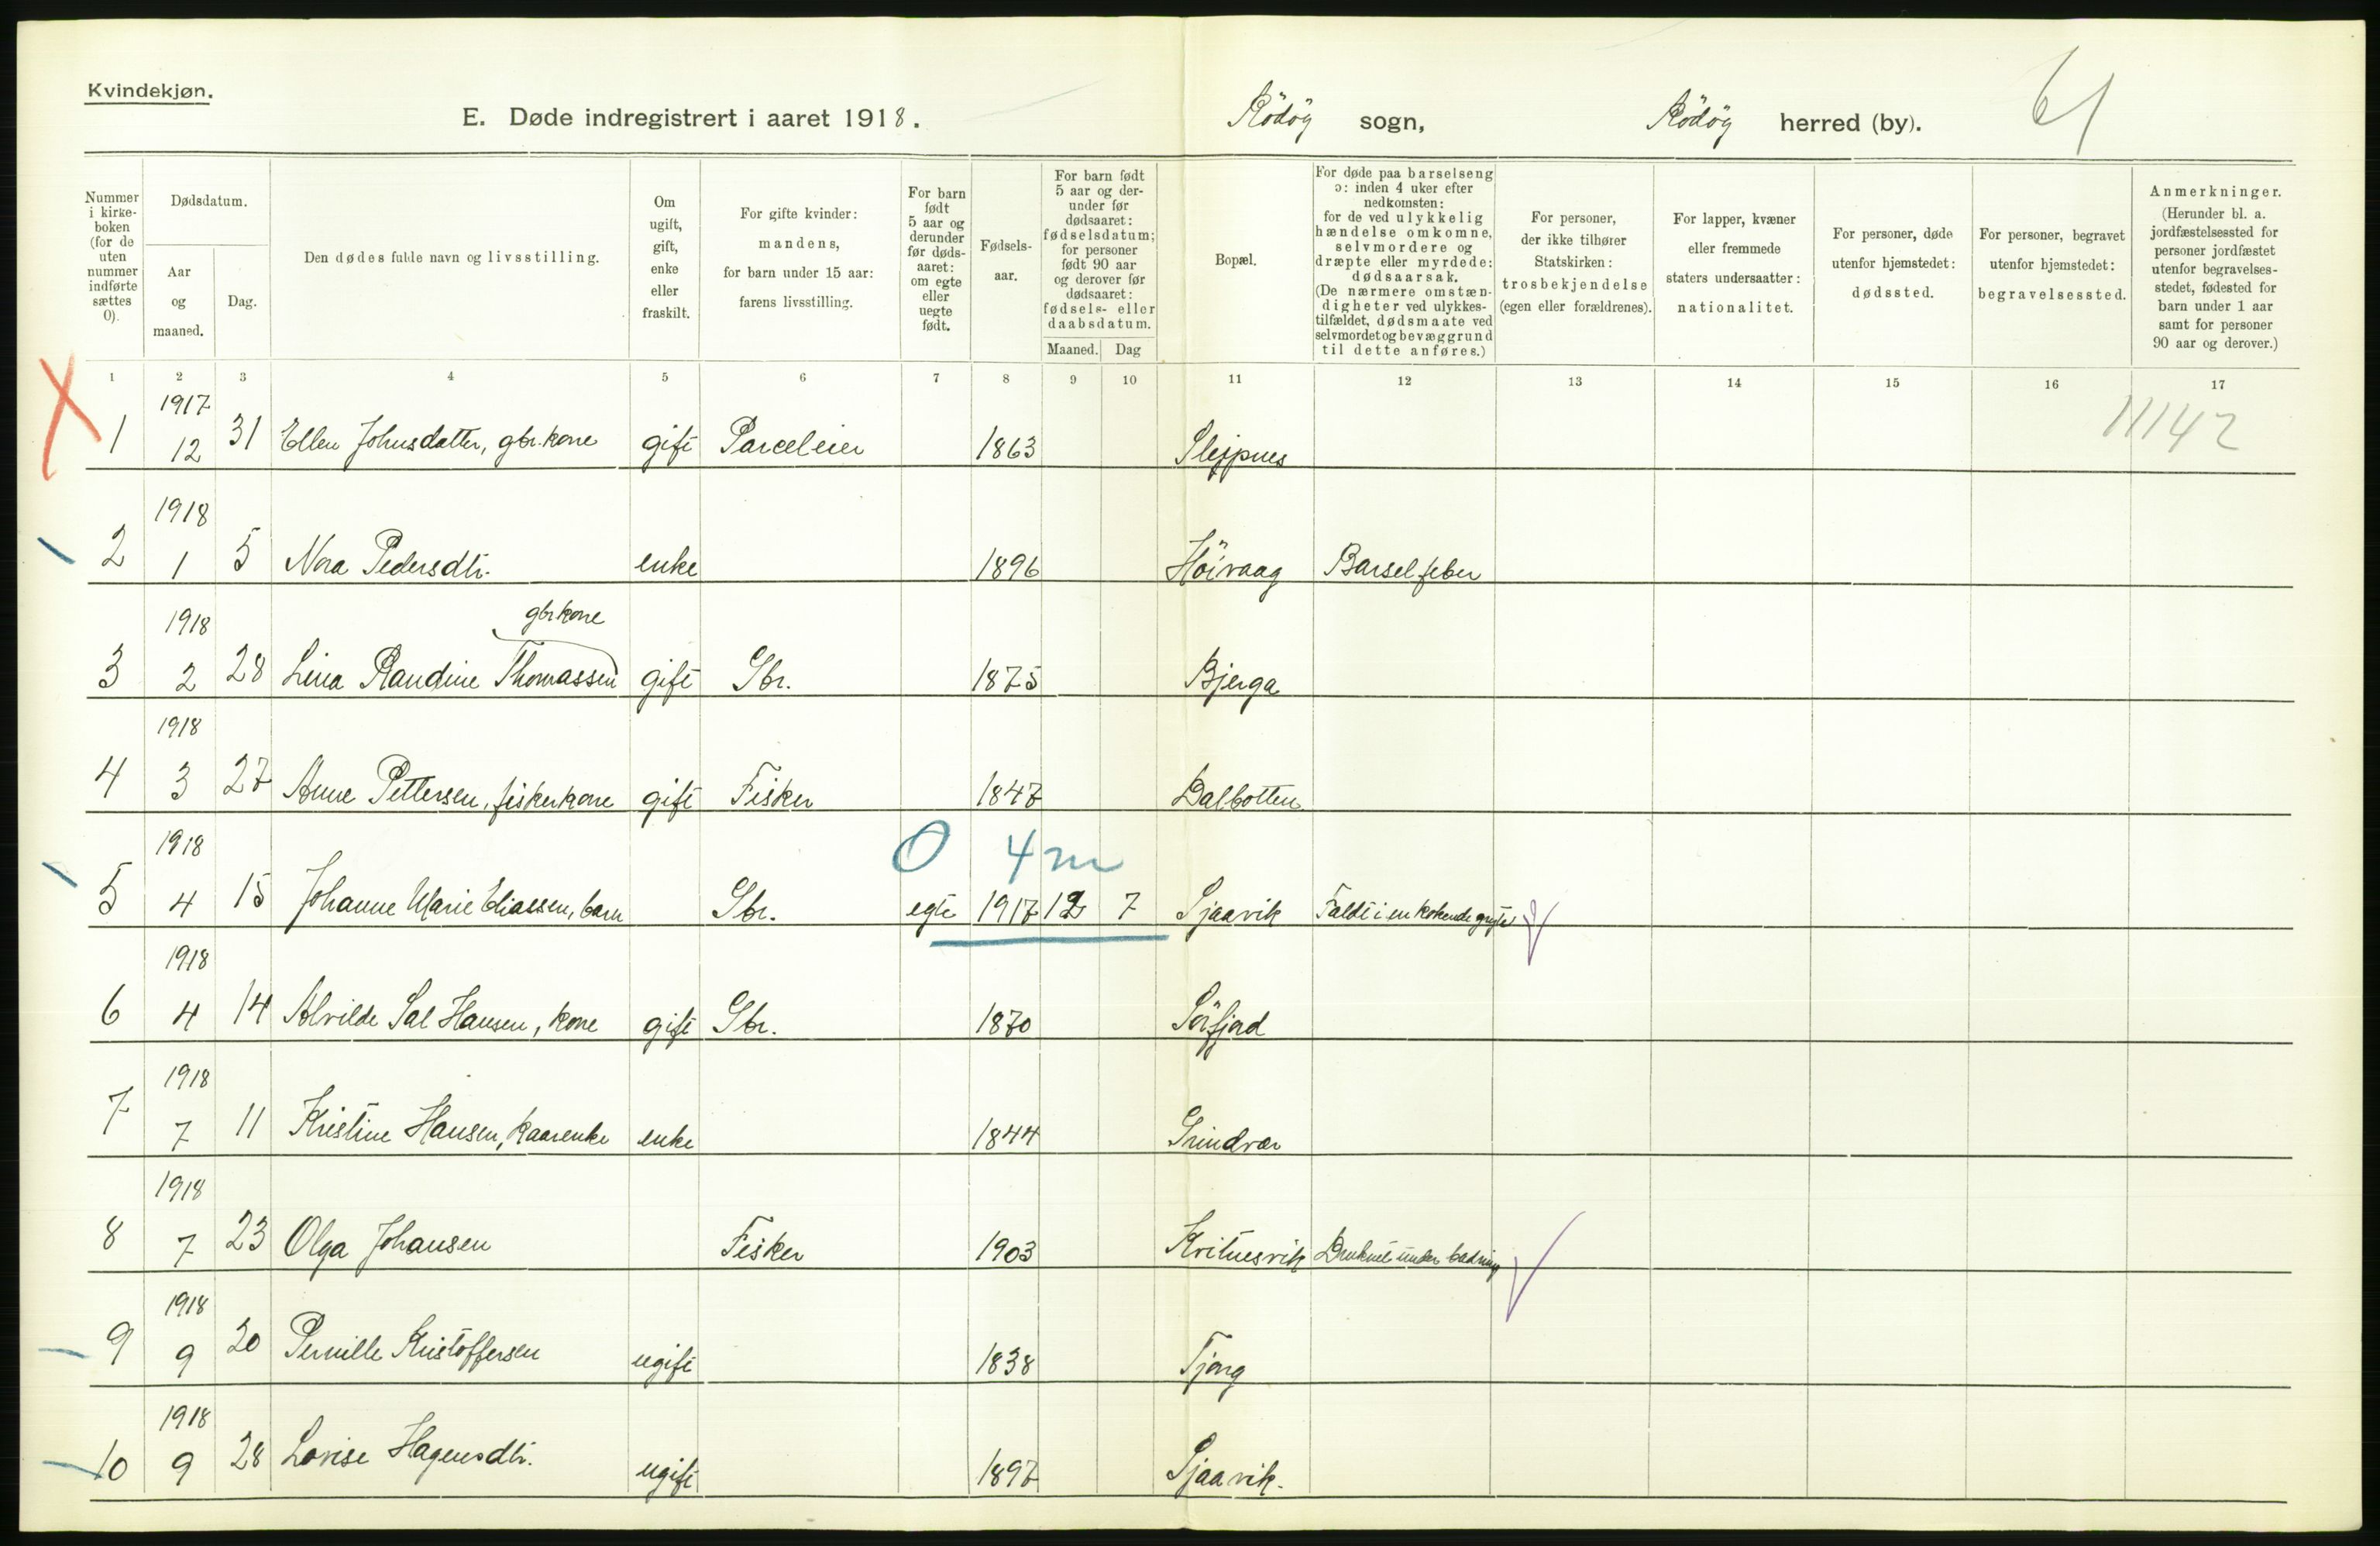 Kvindekjøn.
E. Døde indregistrert i aaret 1918. Rödöy sogn, Rödöy herred (by). 61
Nummer i kirkeboken (for de uten nummer indførte sættes 0).
Dødsdatum.
Aar og maaned.
Dag.
Den dødes fulde navn og livsstilling.
Om ugift, gift, enke eller fraskilt.
For gifte kvinder: mandens, for barn under 15 aar: farens livsstilling.
For barn født 5 aar og derunder før dødsaaret: om egte eller uegte født.
Fødselsaar.
For barn født 5 aar og derunder før dødsaaret: fødselsdatum; for personer født 90 aar og derover før dødsaaret: fødsels- eller daabsdatum.
Maaned. Dag
Bopæl.
For døde paa barselseng ɔ: inden 4 uker efter nedkomsten: for de ved ulykkelig hændelse omkomne, selvmordere og dræpte eller myrdede: dødsaarsak. (De nærmere omstændigheter ved ulykkestilfældet, dødsmaate ved selvmordet og bevæggrund til dette anføres.)
For personer, der ikke tilhører Statskirken: trosbekjendelse (egen eller forældrenes).
For lapper, kvæner eller fremmede staters undersaatter: nationalitet.
For personer, døde utenfor hjemstedet: dødssted.
For personer, begravet utenfor hjemstedet: begravelsessted.
Anmerkninger. (Herunder bl. a. jordfæstelsessted for personer jordfæstet utenfor begravelsesstedet, fødested for barn under 1 aar samt for personer 90 aar og derover.)
1 2 3 4 5 6 7 8 9 10 11 12 13 14 15 16 17
1917
1 12 31 Ellen Johnsdatter, gbr.kone gift Parceleier 1863 Slejpnes 11142
1918
2 1 5 Nora Pedersdtr. enke 1896 Höivaag Barselfeber
1918 gbrkone
3 2 28 Lina Randine Thomassen gift Gbr. 1875 Bjerga
1918
4 3 27 Anne Pettersen, fiskerkone gift Fisker 1847 Dalbotten
1918 0 4 m
5 4 15 Johanne Marie Eliassen, barn Gbr. egte 1917 12 7 Sjaavik Faldt i en kokende gryte
1918
6 4 14 Alvilde Sal Hansen, kone gift Gbr. 1870 Sörfjord
1918
7 7 11 Kristine Hansen, kaarenke enke 1844 Grindvær
1918
8 7 23 Olga Johansen Fisker 1903 Kvitnesvik Druknet under badning
1918
9 9 20 Pernille Kristoffersen ugift 1838 Tjong
1918
10 9 28 Lovise Hagensdtr. ugift 1897 Sjaavik.